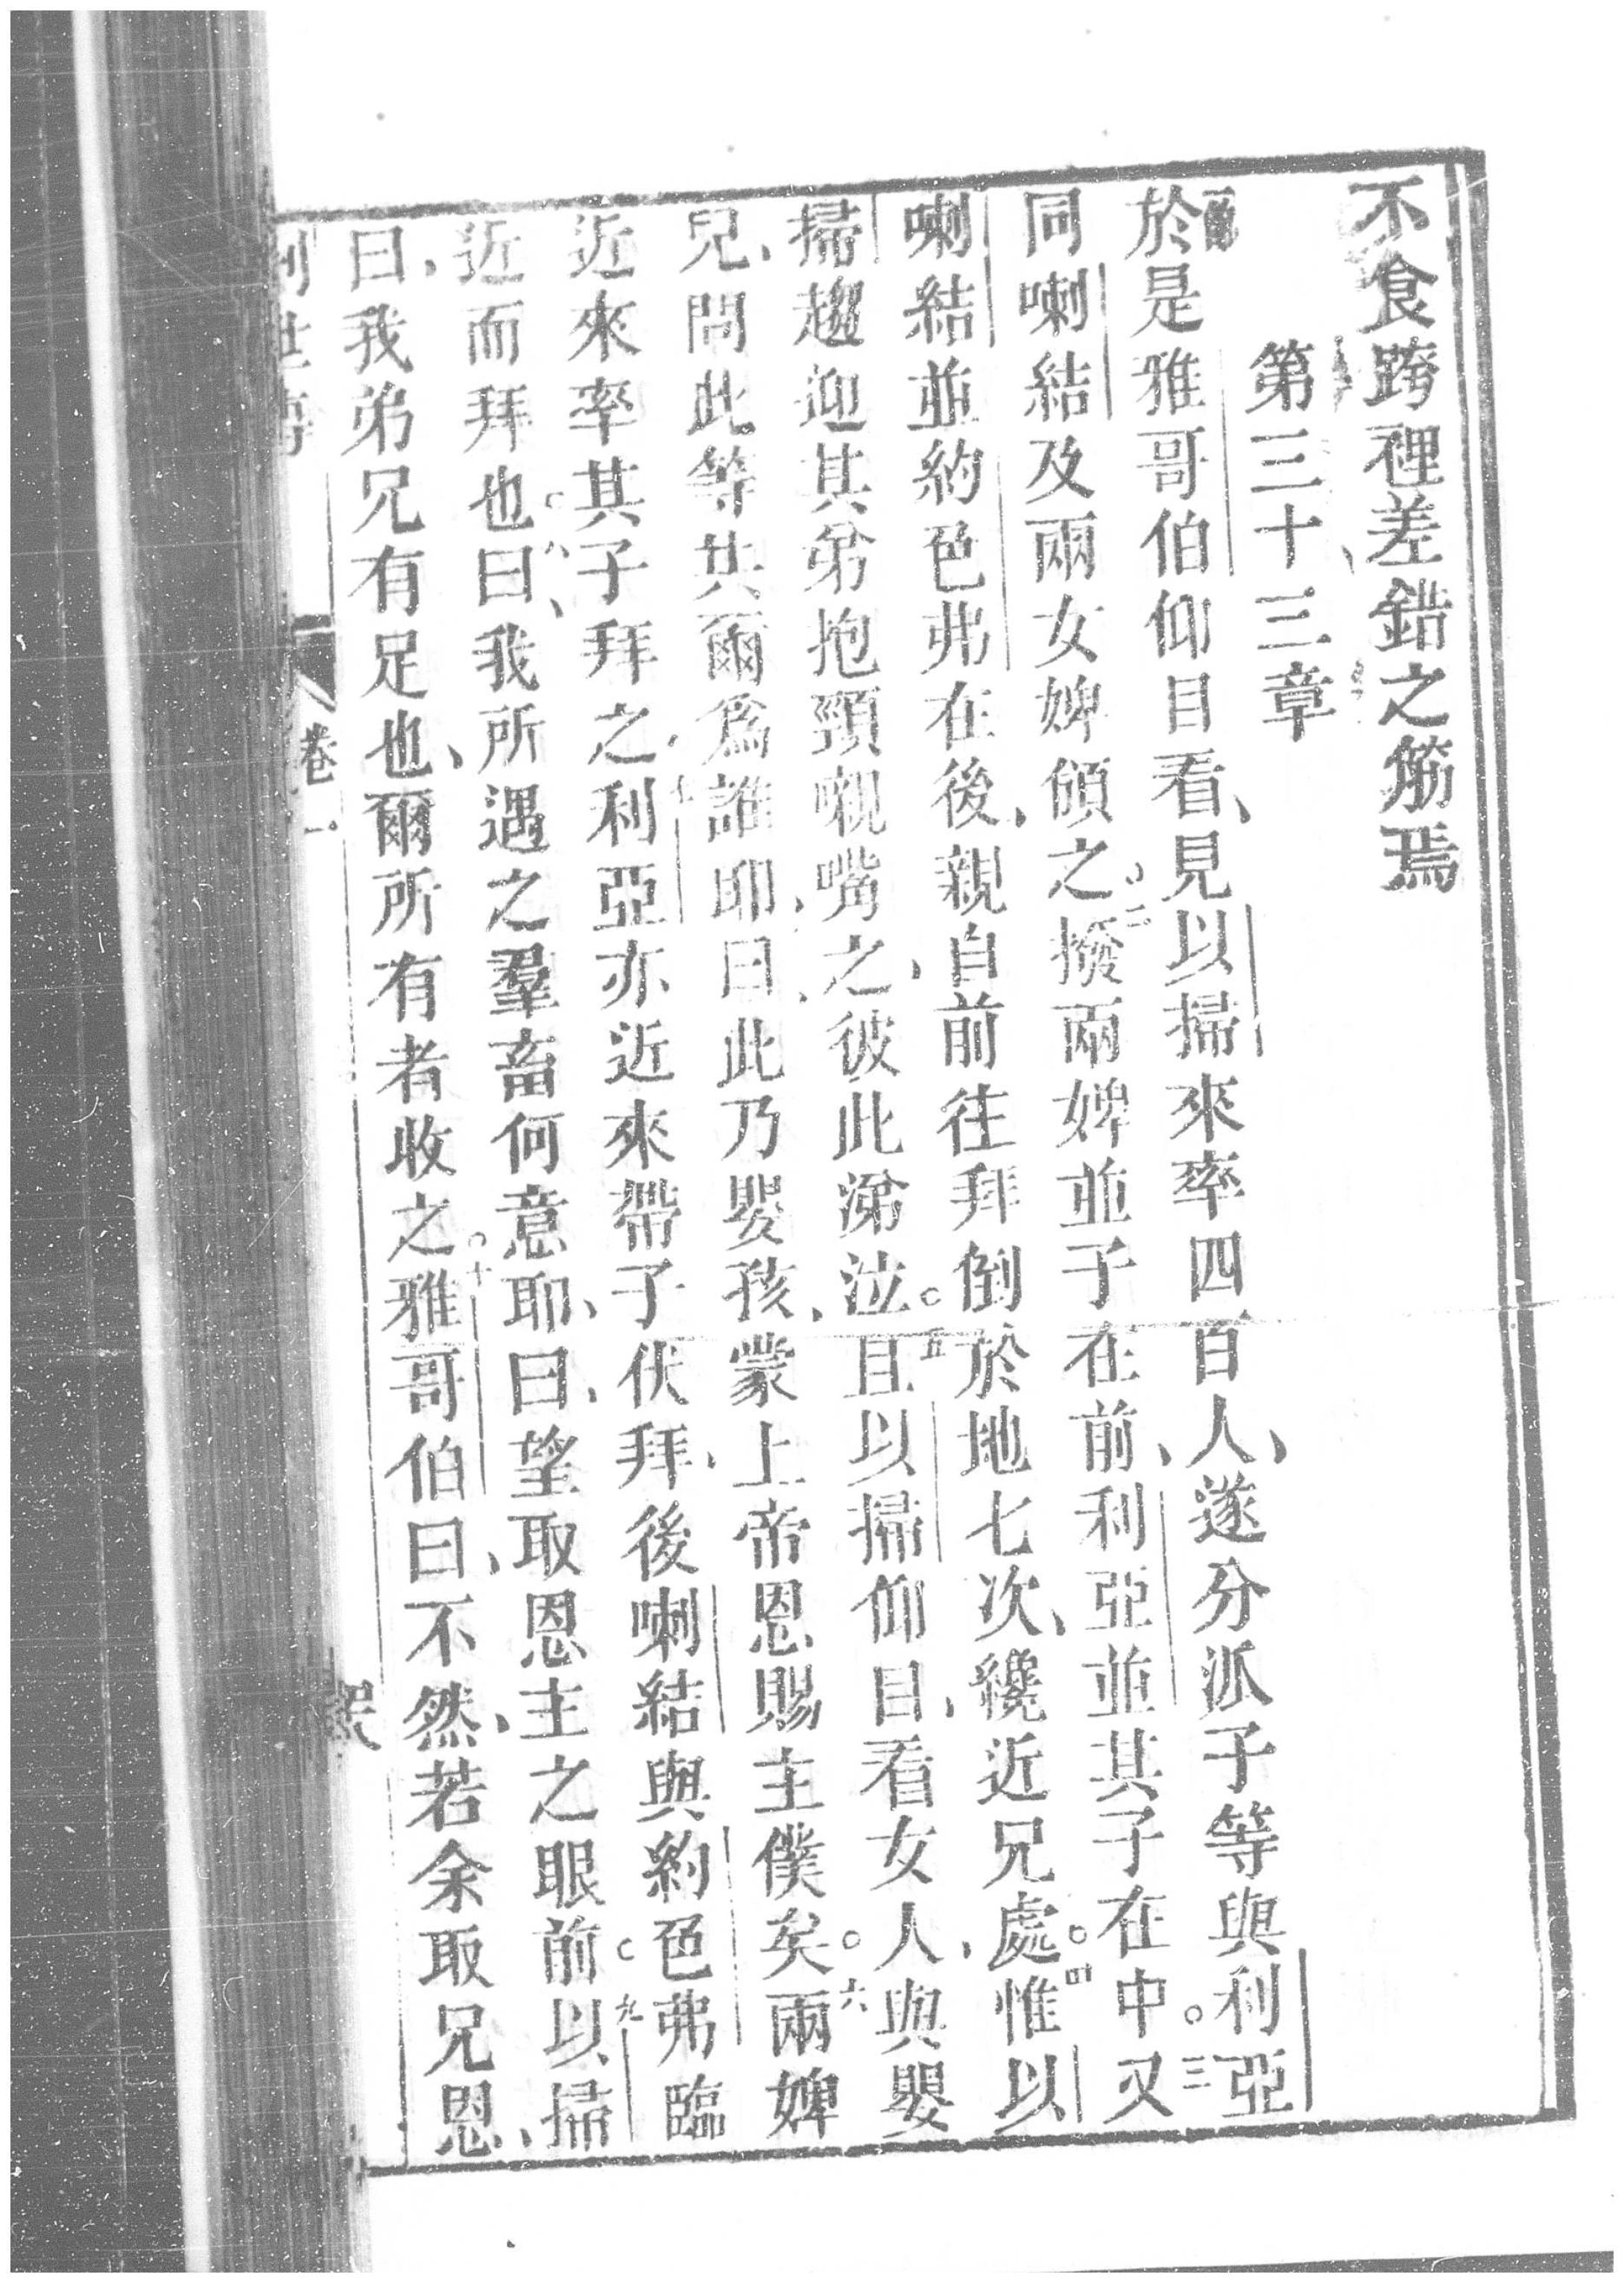 不食跨裡差錯之筋焉
第三十三章
於是雅哥伯仰目看、見以掃來率四百人、遂分派子等與利亞
同喇結及兩女婢傾之。二撥兩婢並子在前、利亞並其子在中。三又
喇結並約色弗在後、親自前往拜倒於地七次、纔近兄處。四惟以
掃趨迎其弟抱頸嘴之、彼此涕泣。五且以掃仰目、看女人、與嬰
兒、問此等共爾為誰耶、曰、此乃嬰孩、蒙上帝恩賜主僕矣。六兩婢
近來率其子拜之、利亞亦近來帶子伏拜、後喇結與約色弗臨
近而拜也。八曰、我所遇之羣畜何意耶、曰、望取恩主之眼前。九以掃
曰、我弟兄有足也、爾所有者收之。十雅哥伯曰、不然、若余取兄恩、
創世傳 卷一